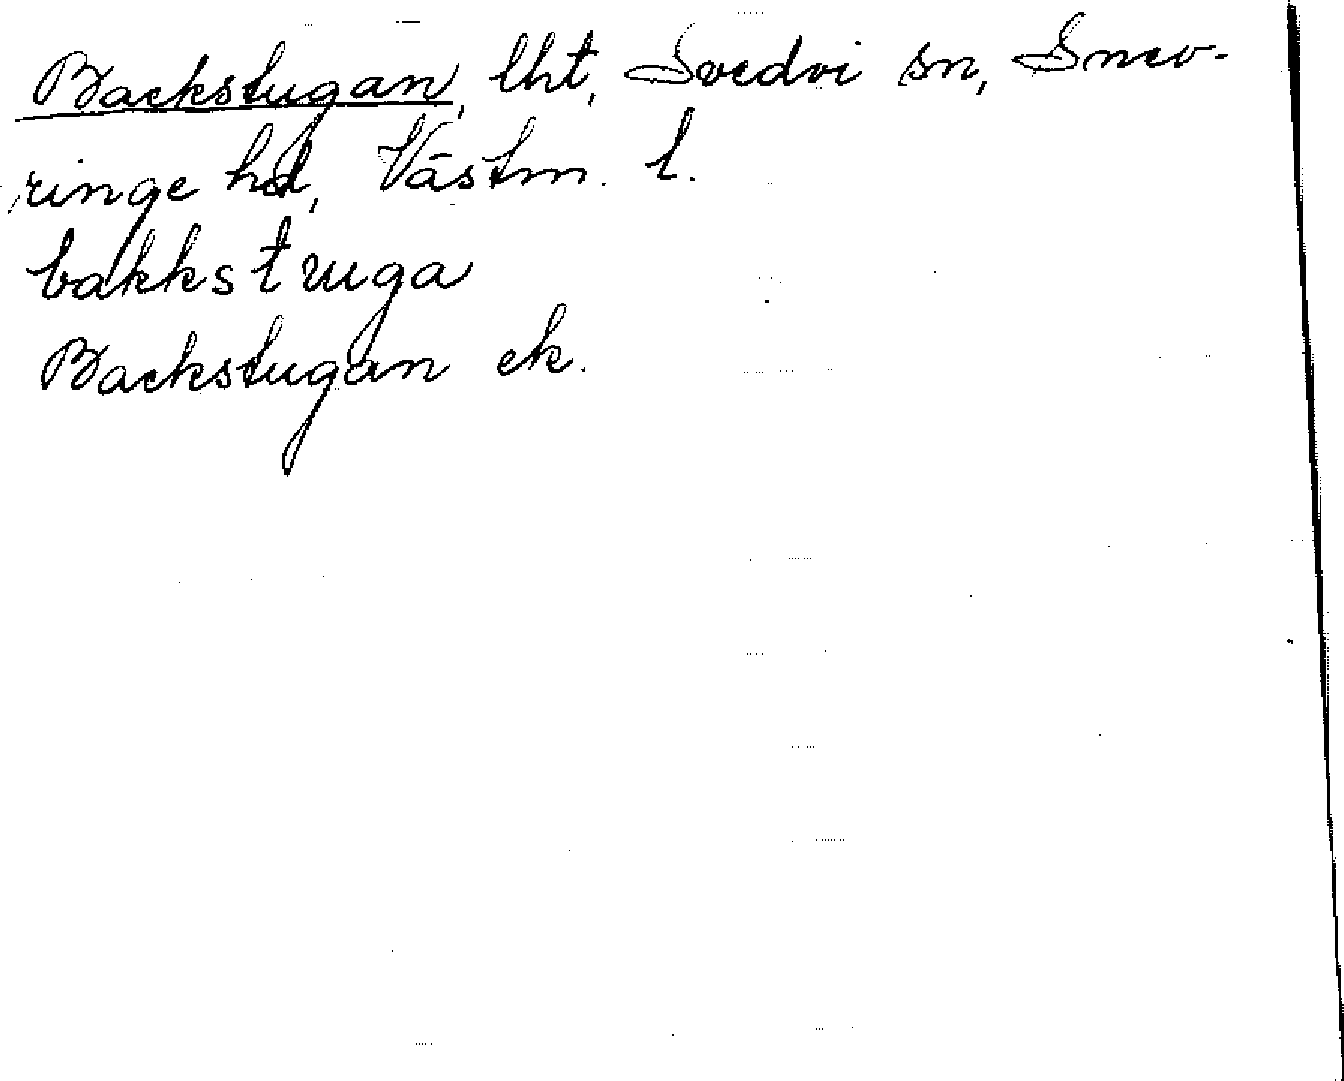 Backstugan, lht, Svedvi sn, Snev-
ringe hd, Västm. l.
bakkstuga
Backstugan ek.